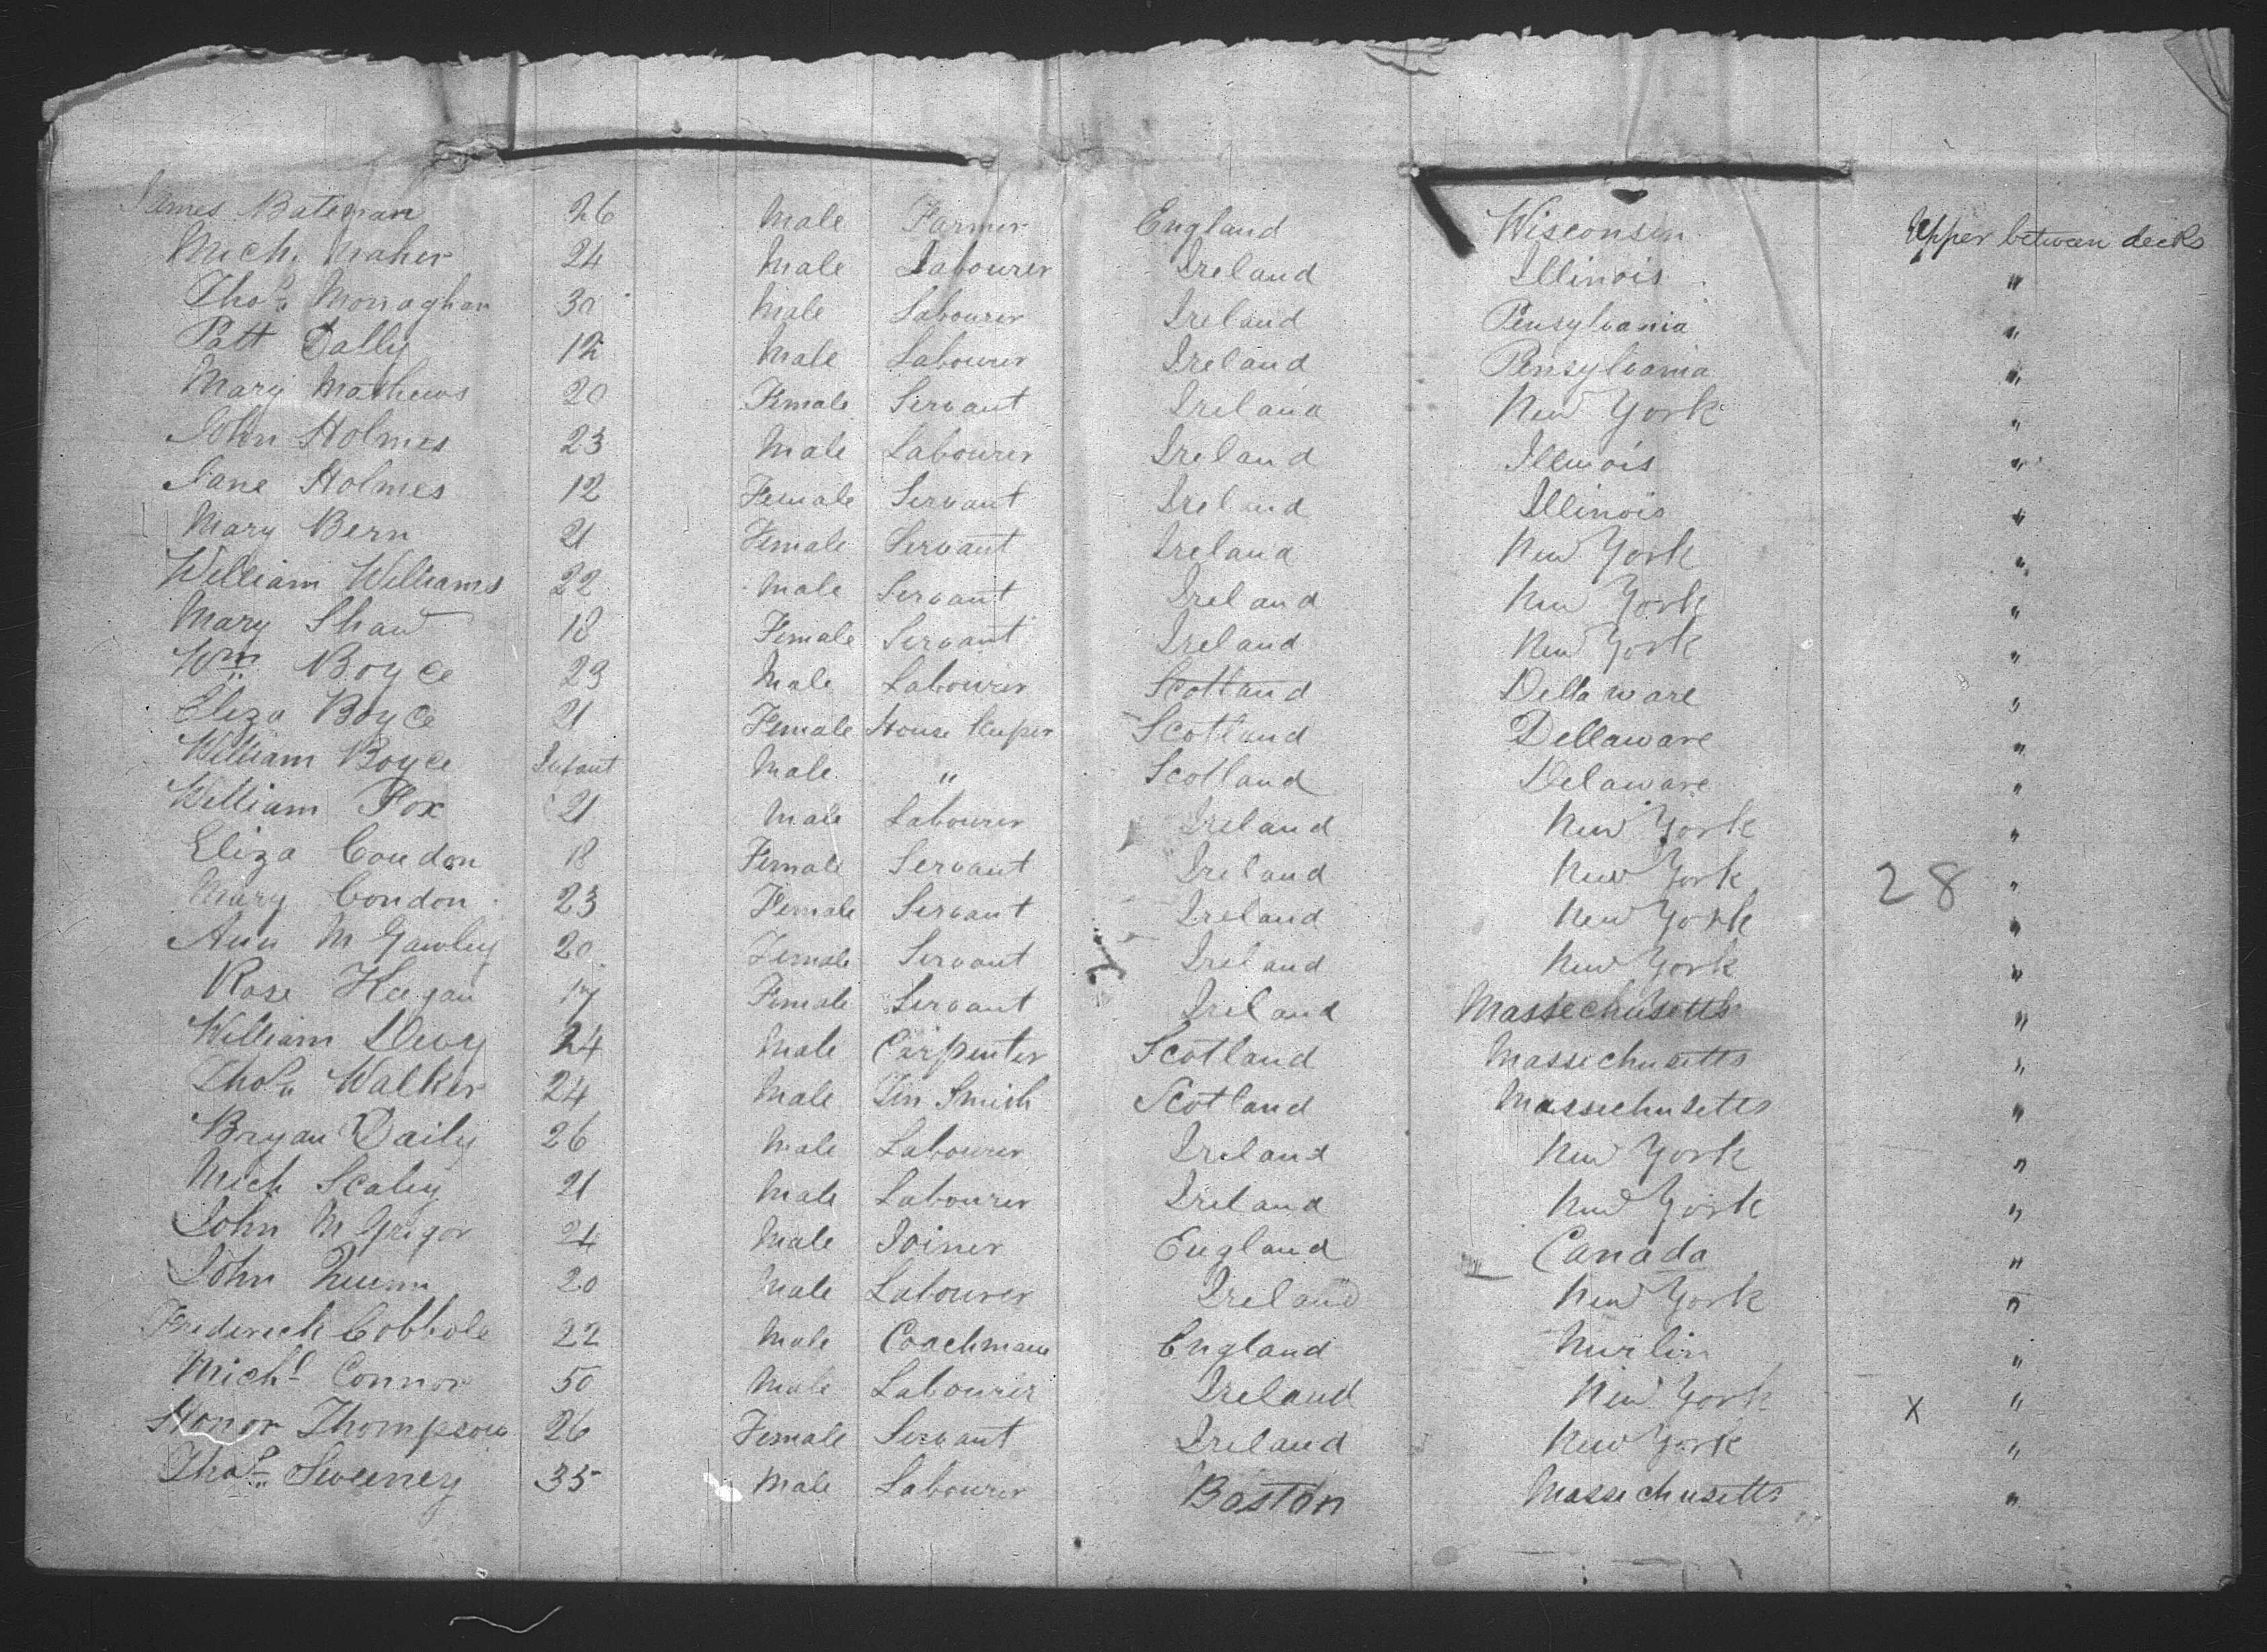 James Bateman 26 Male Farmer England Wisconsin Upper between decks
Mich. Maher 24 Male Labourer Ireland Illinois "
Thos. Monaghan 30 Male Labourer Ireland Pensylvania "
Patt Dally 12 Male Labourer Ireland Pensylvania "
Mary Mathews 20 Female Servant Ireland New York "
John Holmes 23 Male Labourer Ireland Illinois "
Jane Holmes 12 Female Servant Ireland Illinois "
Mary Bern 21 Female Servant Ireland New York "
William Williams 22 Male Servant Ireland New York "
Mary Shaw 18 Female Servant Ireland New York "
Wm Boyce 23 Male Labourer Scotland Dellaware "
Eliza Boyce 21 Female House Keeper Scotland Dellaware "
William Boyce Infant Male " Scotland Delaware "
William Fox 21 Male Labourer Ireland New York "
Eliza Condon 18 Female Servant Ireland New York 28 "
Mary Condon 23 Female Servant Ireland New York "
Ann McGawley 20 Female Servant Ireland New York "
Rose Keegan 17 Female Servant Ireland Massechusetts "
William Devy 24 Male Carpenter Scotland Massechusetts "
Thos. Walker 24 Male Tin Smith Scotland Massechusetts "
Bryan Daily 26 Male Labourer Ireland New York "
Mich Scaley 21 Male Labourer Ireland New York "
John McGregor 24 Male Joiner England Canada "
John Quinn 20 Male Labourer Ireland New York "
Frederick Cobbold 22 Male Coachman England "
Michl Connor 50 Male Labourer Ireland New York X "
Honor Thompson 26 Female Servant Ireland New York "
Thos. Sweeney 35 Male Labourer Boston Massechusetts "